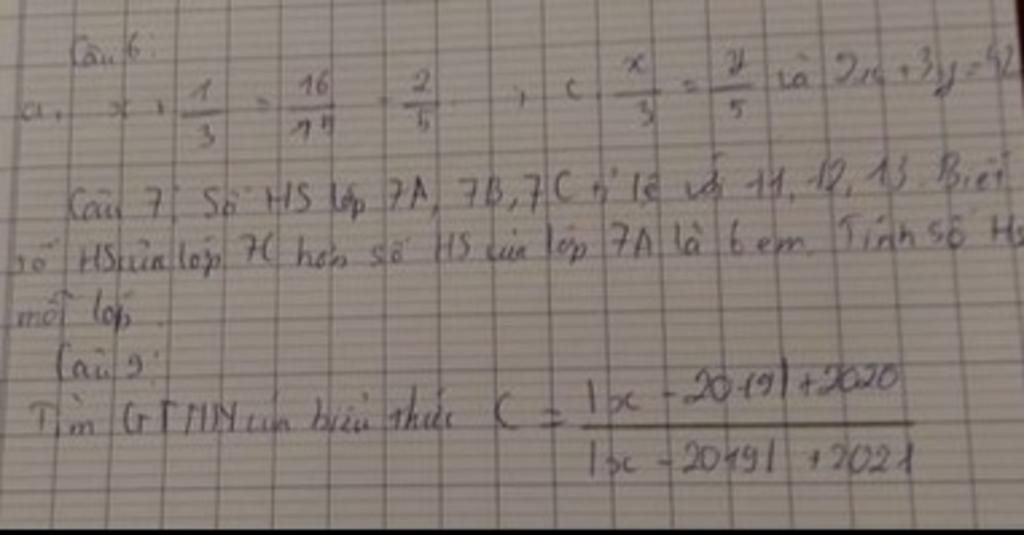 Câu 6:
a. x + 1/3 = 16/ - 2/5 , c x/3 = y/5 và 2x + 3y = 42
Câu 7: Số HS lớp 7A, 7B, 7C tỉ lệ với 11, 12, 13. Biết
số HS của lớp 7C hơn số HS của lớp 7A là 6 em. Tính số HS
mỗi lớp.
Câu 9:
Tìm GTNN của biểu thức C = |x - 2019| + 2020 / |x - 2019| + 2021